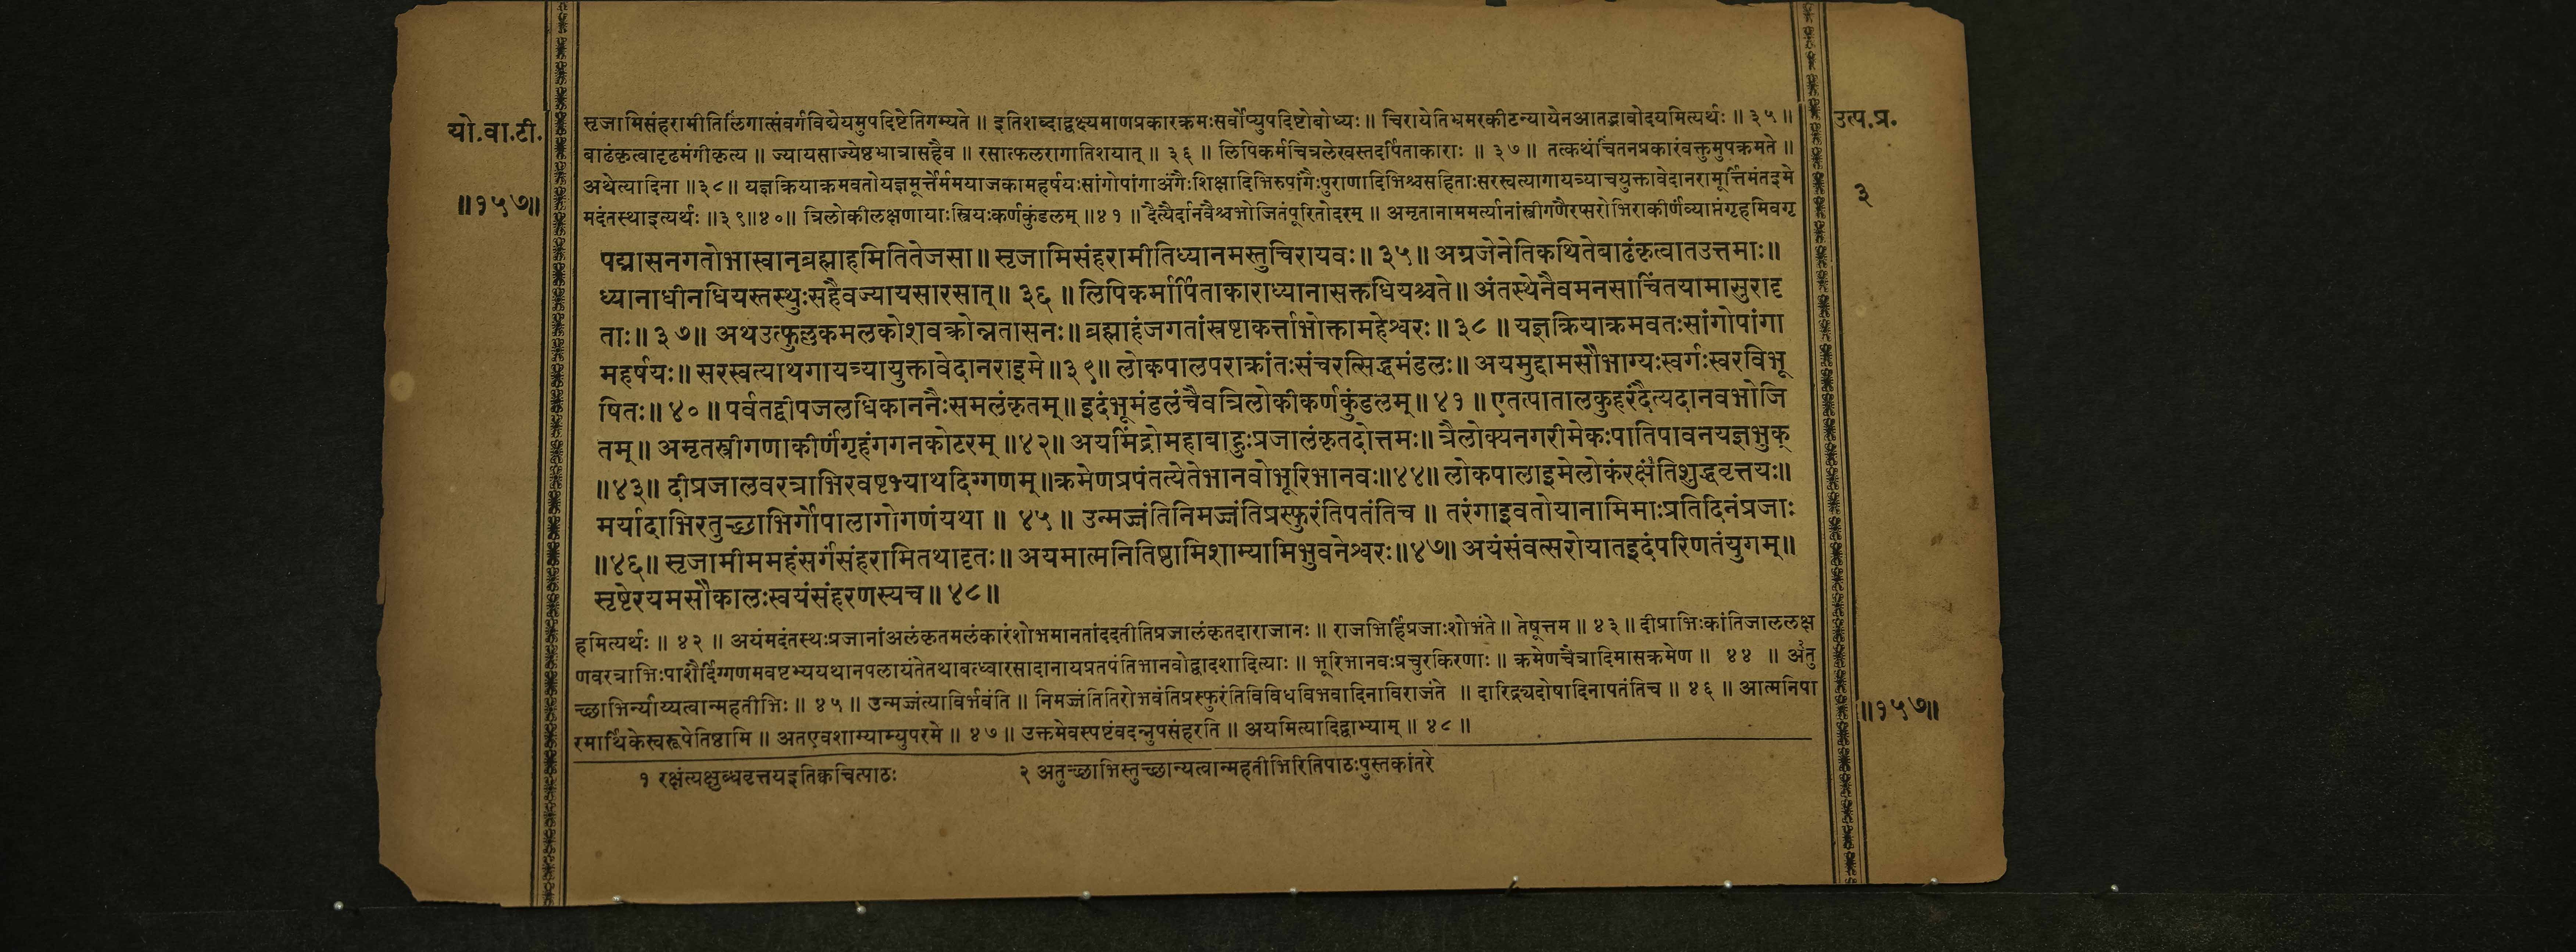 यो.वा.टी.
॥१५७॥
सृजामिसंहरामीतिलिंगात्संवर्गविद्येयमुपदिष्टेतिगम्यते ॥ इतिशब्दाद्वक्ष्यमाणप्रकारक्रमःसर्वोप्युपदिष्टोबोध्यः ॥ चिरायेतिभ्रमरकीटन्यायेनआतद्भावोदयमित्यर्थः ॥ ३५ ॥
बाढंकृत्वादृढमंगीकृत्य ॥ ज्यायसाज्येष्ठभ्रात्रासहैव ॥ रसात्फलरागातिशयात् ॥ ३६ ॥ लिपिकर्मचित्रलेखस्तदर्पिताकाराः ॥ ३७ ॥ तत्कथंचिंतनप्रकारंवक्तुमुपक्रमते ॥
अथेत्यादिना ॥३८॥ यज्ञक्रियाक्रमवतोयज्ञमूर्त्तेर्ममयाजकामहर्षयःसांगोपांगाअंगैःशिक्षादिभिरुपांगैःपुराणादिभिश्चसहिताःसरस्वत्यागायत्र्याचयुक्तावेदानरामूर्त्तिमंतइमे
मदंतस्थाइत्यर्थः ॥३९॥४०॥ त्रिलोकीलक्षणायाःस्त्रियःकर्णकुंडलम् ॥४१ ॥ दैत्यैर्दानवैश्चभोजितंपूरितोदरम् ॥ अमृतानाममर्त्यानांस्त्रीगणैरप्सरोभिराकीर्णंव्याप्तंगृहमिवगृ
पद्मासनगतोभास्वान्ब्रह्माहमितितेजसा ॥ सृजामिसंहरामीतिध्यानमस्तुचिरायवः ॥ ३५ ॥ अग्रजेनेतिकथितेबाढंकृत्वातउत्तमाः ॥
ध्यानाधीनधियस्तस्थुःसहैवज्यायसारसात् ॥ ३६ ॥ लिपिकर्मार्पिताकाराध्यानासक्तधियश्चते ॥ अंतस्थेनैवमनसाचिंतयामासुरादृ
ताः ॥ ३७ ॥ अथउत्फुल्लकमलकोशवक्रोन्नतासनः ॥ ब्रह्माहंजगतांस्रष्टाकर्त्ताभोक्तामहेश्वरः ॥ ३८ ॥ यज्ञक्रियाक्रमवतःसांगोपांगा
महर्षयः ॥ सरस्वत्याथगायत्र्यायुक्तावेदानराइमे ॥३९॥ लोकपालपराक्रांतःसंचरत्सिद्धमंडलः ॥ अयमुद्दामसौभाग्यःस्वर्गःस्वरविभू
षितः ॥ ४० ॥ पर्वतद्वीपजलधिकाननैःसमलंकृतम् ॥ इदंभूमंडलंचैवत्रिलोकीकर्णकुंडलम् ॥ ४१ ॥ एतत्पातालकुहरंदैत्यदानवभोजि
तम् ॥ अमृतस्त्रीगणाकीर्णंगृहंगगनकोटरम् ॥४२॥ अयमिंद्रोमहाबाहुःप्रजालंकृतदोत्तमः ॥ त्रैलोक्यनगरीमेकःपातिपावनयज्ञभुक्
॥४३॥ दीप्रजालवरत्राभिरवष्टभ्याथदिग्गणम् ॥ क्रमेणप्रपंतत्येतेभानवोभूरिभानवः ॥४४॥ लोकपालाइमेलोकंरक्षं१तिशुद्धवृत्तयः ॥
मर्यादाभिरतुच्छाभिर्गोपालागोगणंयथा ॥ ४५ ॥ उन्मज्जंतिनिमज्जंतिप्रस्फुरंतिपतंतिच ॥ तरंगाइवतोयानामिमाःप्रतिदिनंप्रजाः
॥४६॥ सृजामीममहंसर्गंसंहरामितथादृतः ॥ अयमात्मनितिष्ठामिशाम्यामिभुवनेश्वरः ॥४७॥ अयंसंवत्सरोयातइदंपरिणतंयुगम् ॥
सृष्टेरयमसौकालःस्वयंसंहरणस्यच ॥ ४८ ॥
हमित्यर्थः ॥ ४२ ॥ अयंमदंतस्थःप्रजानांअलंकृतमलंकारंशोभमानतांददतीतिप्रजालंकृतदाराजानः ॥ राजभिर्हिप्रजाःशोभंते ॥ तेषूत्तम ॥ ४३ ॥ दीप्राभिःकांतिजाललक्ष
णवरत्राभिःपाशैर्दिग्गणमवष्टभ्ययथानपलायंतेतथाबत्ध्वारसादानायप्रतपंतिभानवोद्वादशादित्याः ॥ भूरिभानवःप्रचुरकिरणाः ॥ क्रमेणचैत्रादिमासक्रमेण ॥ ४४ ॥ अ२तु
च्छाभिर्न्याय्यत्वान्महतीभिः ॥ ४५ ॥ उन्मज्जंत्याविर्भवंति ॥ निमज्जंतितिरोभवंतिप्रस्फुरंतिविविधविभवादिनाविराजंते ॥ दारिद्र्यदोषादिनापतंतिच ॥ ४६ ॥ आत्मनिपा
रमार्थिकेस्वरूपेतिष्ठामि ॥ अतएवशाम्याम्युपरमे ॥ ४७ ॥ उक्तमेवस्पष्टंवदन्नुपसंहरति ॥ अयमित्यादिद्वाभ्याम् ॥ ४८ ॥
१ रक्षंत्यक्षुब्धवृत्तयइतिक्वचित्पाठः २ अतुच्छाभिस्तुच्छान्यत्वान्महतीभिरितिपाठःपुस्तकांतरे
उत्प.प्र.
३
॥१५७॥